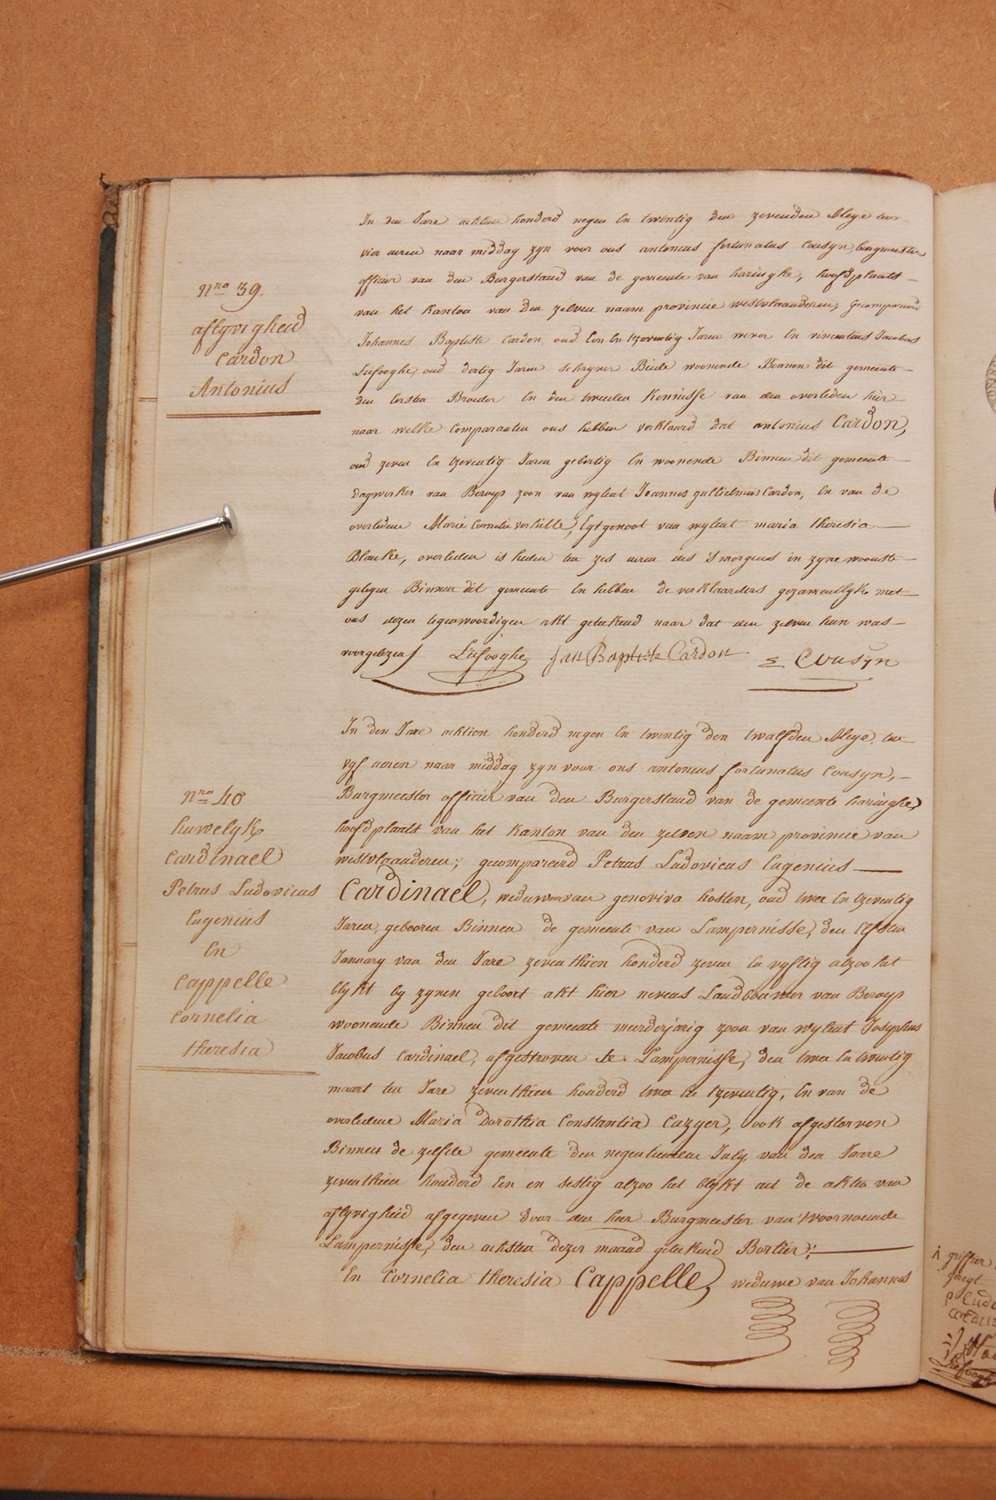 In den Jare achtien honderd negen En twintig den zevenden Meye ter
vier uren naar middag zyn voor ons antonius fortunatus Cousyn, burgmeester
officier van den Burgerstand van de gemeente van haringhe, hoofdplaats
van het kanton van den zelven naam provincie westvlaanderen, gecompareerd
Johannes Baptiste Cardon oud Een En tzeventig Jaren wever En vincentius Jacobus
Lufooghe, oud dertig Jaren schryver Beide woonende Binnen dit gemeente
den Eersten Broeder En den tweeden kennisse van den overleden hier
naar welke Comparanten ons hebben verklaard dat antonius Cardon,
oud zeven En tzeventig Jaren gebortig En woonende Binnen dit gemeente
dagwerker van Beroep zoon van wylent Joannes gullielmus Cardon, En van de
overledene Marie Cornelie verhille, Egtgenoot van wylent maria theresia
Blancke, overleden is heden ten zes uren des s'morgens in zyne woonste
gelegen Binnen dit gemeente En hebben de verklaarders gezamenlyk met
ons dezen tegenwoordigen akt geteekend naar dat den zelven hun was
voorgelezen / Lufooghe Jan Baptiste Cardon Cousyn
Nro 39.
aflyvigheid
Cardon
Antonius
In den Jare achtien honderd negen En twintig den twalfden Meye, ter
vyf uren naar middag zyn voor ons antonius fortunatus Cousyn,
Burgmeester officier van den Burgerstand van de gemeente haringhe,
hoofdplaats van het kanton van den zelven naam provincie van
westvlaanderen; gecompareerd Petrus Ludovicus Eugenius
Cardinael, weduwenaar genoviva hosten, oud twee En tzeventig
Jaren, geboren Binnen de gemeente van Lampernisse, den Elfsten
January van den Jare zeventhien honderd zeven En vyftig alzoo het
blykt by zynen geboort akt hier nevens Landbouwer van Beroep
woonende Binnen dit gemeente meerderjarig zoon van wylent Josephus
Jacobus Cardinael, afgestroven te Lampernisse, den twee En twintig
maart den Jare zeventhien honderd twee En tzeventig, En van de
overledene Maria Dorothia Constantia Cuzyer, ook afgestorven
Binnen de zelfde gemeente den negentienden July van den Jaere
zeventhien honderd Een en sestig alzoo het blykt uit de akten van
aflyvigheid afgegeven door den heer Burgmeester van 't voornoemde
Lampernisse, den achsten dezer maand geteekend Bortier;
En Cornelia theresia Cappelle, weduwe van Johannes
nro 40
huwelyk
Cardinael
Petrus Ludovicus
Eugenius
En
Cappelle
Cornelia
theresia